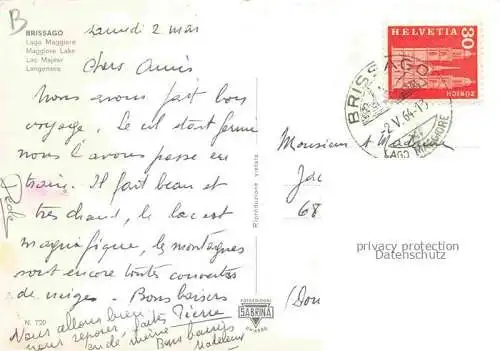 B
BRISSAGO
Lago Maggiore
Maggiore Lake
Lac Majeur
Langensee
samedi 2 mai
Chers Amis
Nous avons fait bon
voyage. Le col étant fermé
nous l'avons passé en
train. Il fait beau et
très chaud, le lac est
magnifique, les montagnes
sont encore toutes couvertes
de neiges. Bons baisers
Pierre
Nous allons bien
nous reposer, faites
en de même
Bons baisers
N. 720
Riproduzione vietata
SABRINA
HELVETIA
30
ZÜRICH
BRISSAGO
-2.V.64-13
LAGO MAGGIORE
Monsieur et Madame
Jac
68
privacy protection
Datenschutz
(Dou